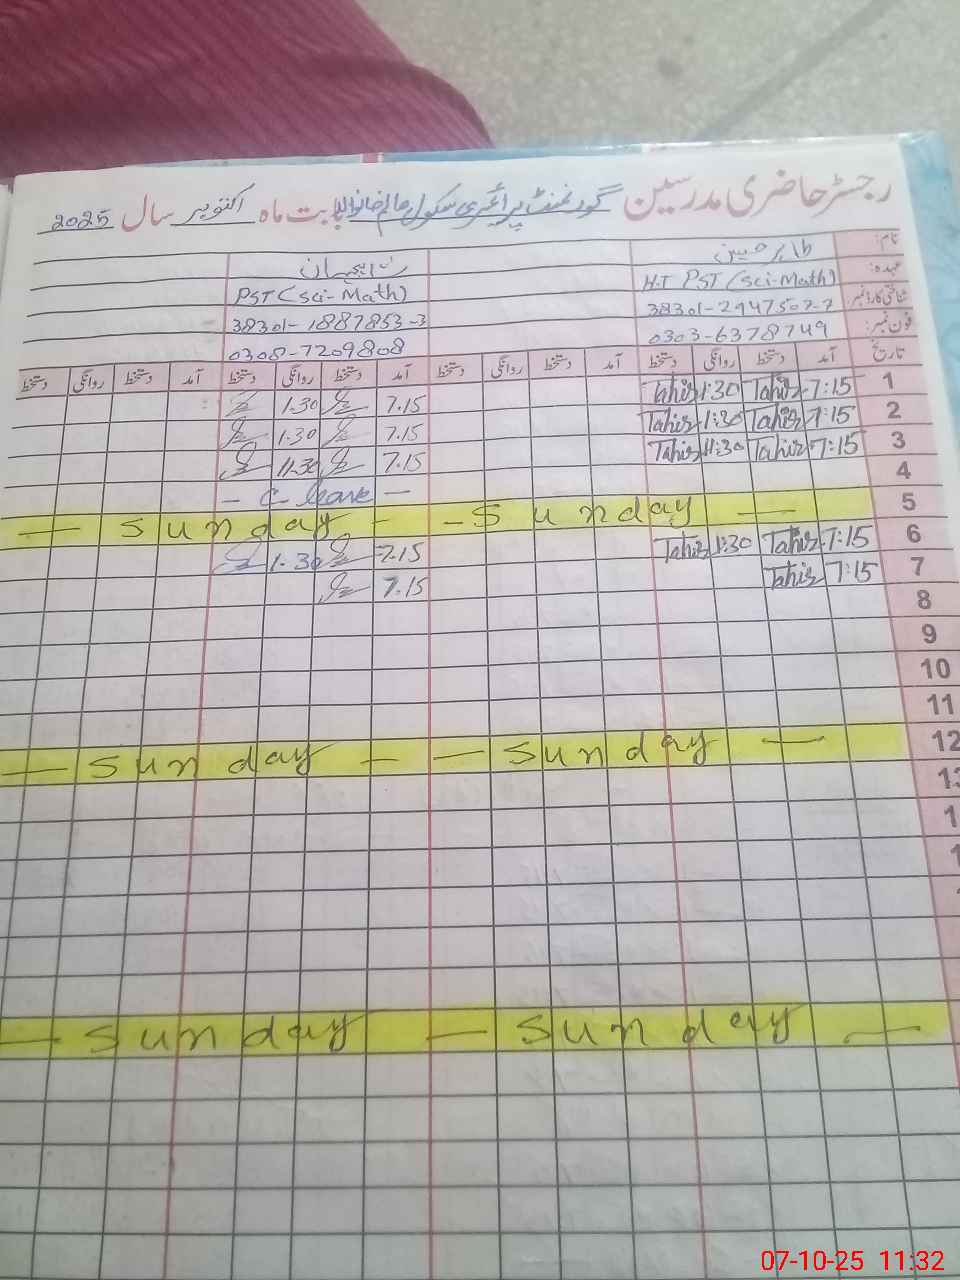 رجسٹر حاضری مدرسین گورنمنٹ پرائمری سکول عالم خانوالہ بابت ماہ اکتوبر سال 2025
نام: طاہر حسین
عہدہ: H.T PST (Sci-Math) PST (Sci-Math)
شناختی کارڈ نمبر: 38301-2947507-7 38301-1887853-3
فون نمبر: 0303-6378749 0308-7209808
تاریخ آمد دستخط روانگی دستخط آمد دستخط روانگی دستخط آمد دستخط روانگی دستخط آمد دستخط روانگی دستخط
1 7:15 Tahir 1:30 Tahir 7.15 1.30
2 7:15 Tahir 1:30 Tahir 7.15 1.30
3 7:15 Tahir 11:30 Tahir 7.15 11.30
4 - C-leave -
5 — Sunday - - Sunday —
6 7:15 Tahir 1:30 Tahir 7.15 1.30
7 7:15 Tahir 7.15
8
9
10
11
12 — Sunday — — Sunday —
13
1
1
— Sunday — — Sunday —
07-10-25 11:32